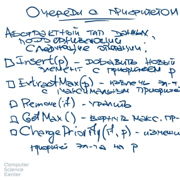 Очереди с приоритетом
Абстрактный тип данных,
поддерживающий
следующие операции:
Insert(p) - добавить новый
элемент с приоритетом p
ExtractMax() - извлечь эл-т
с максимальным приоритетом
Remove(it) - удалить
GetMax() - вернуть макс. пр-
ChangePriority(it, p) - измени
приорит эл-та на p
Computer
Science
Center